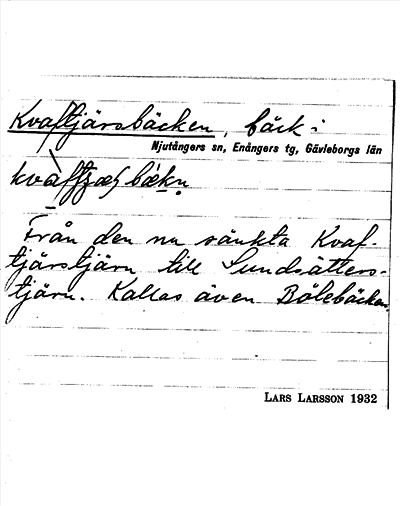 Kvaftjärsbäcken, bäck i
Njutångers sn, Enångers tg, Gävleborgs län
Från den nu sänkta Kvaf-
tjärstjärn till Sundsätters-
tjärn. Kallas även Bölebäcken.
LARS LARSSON 1932